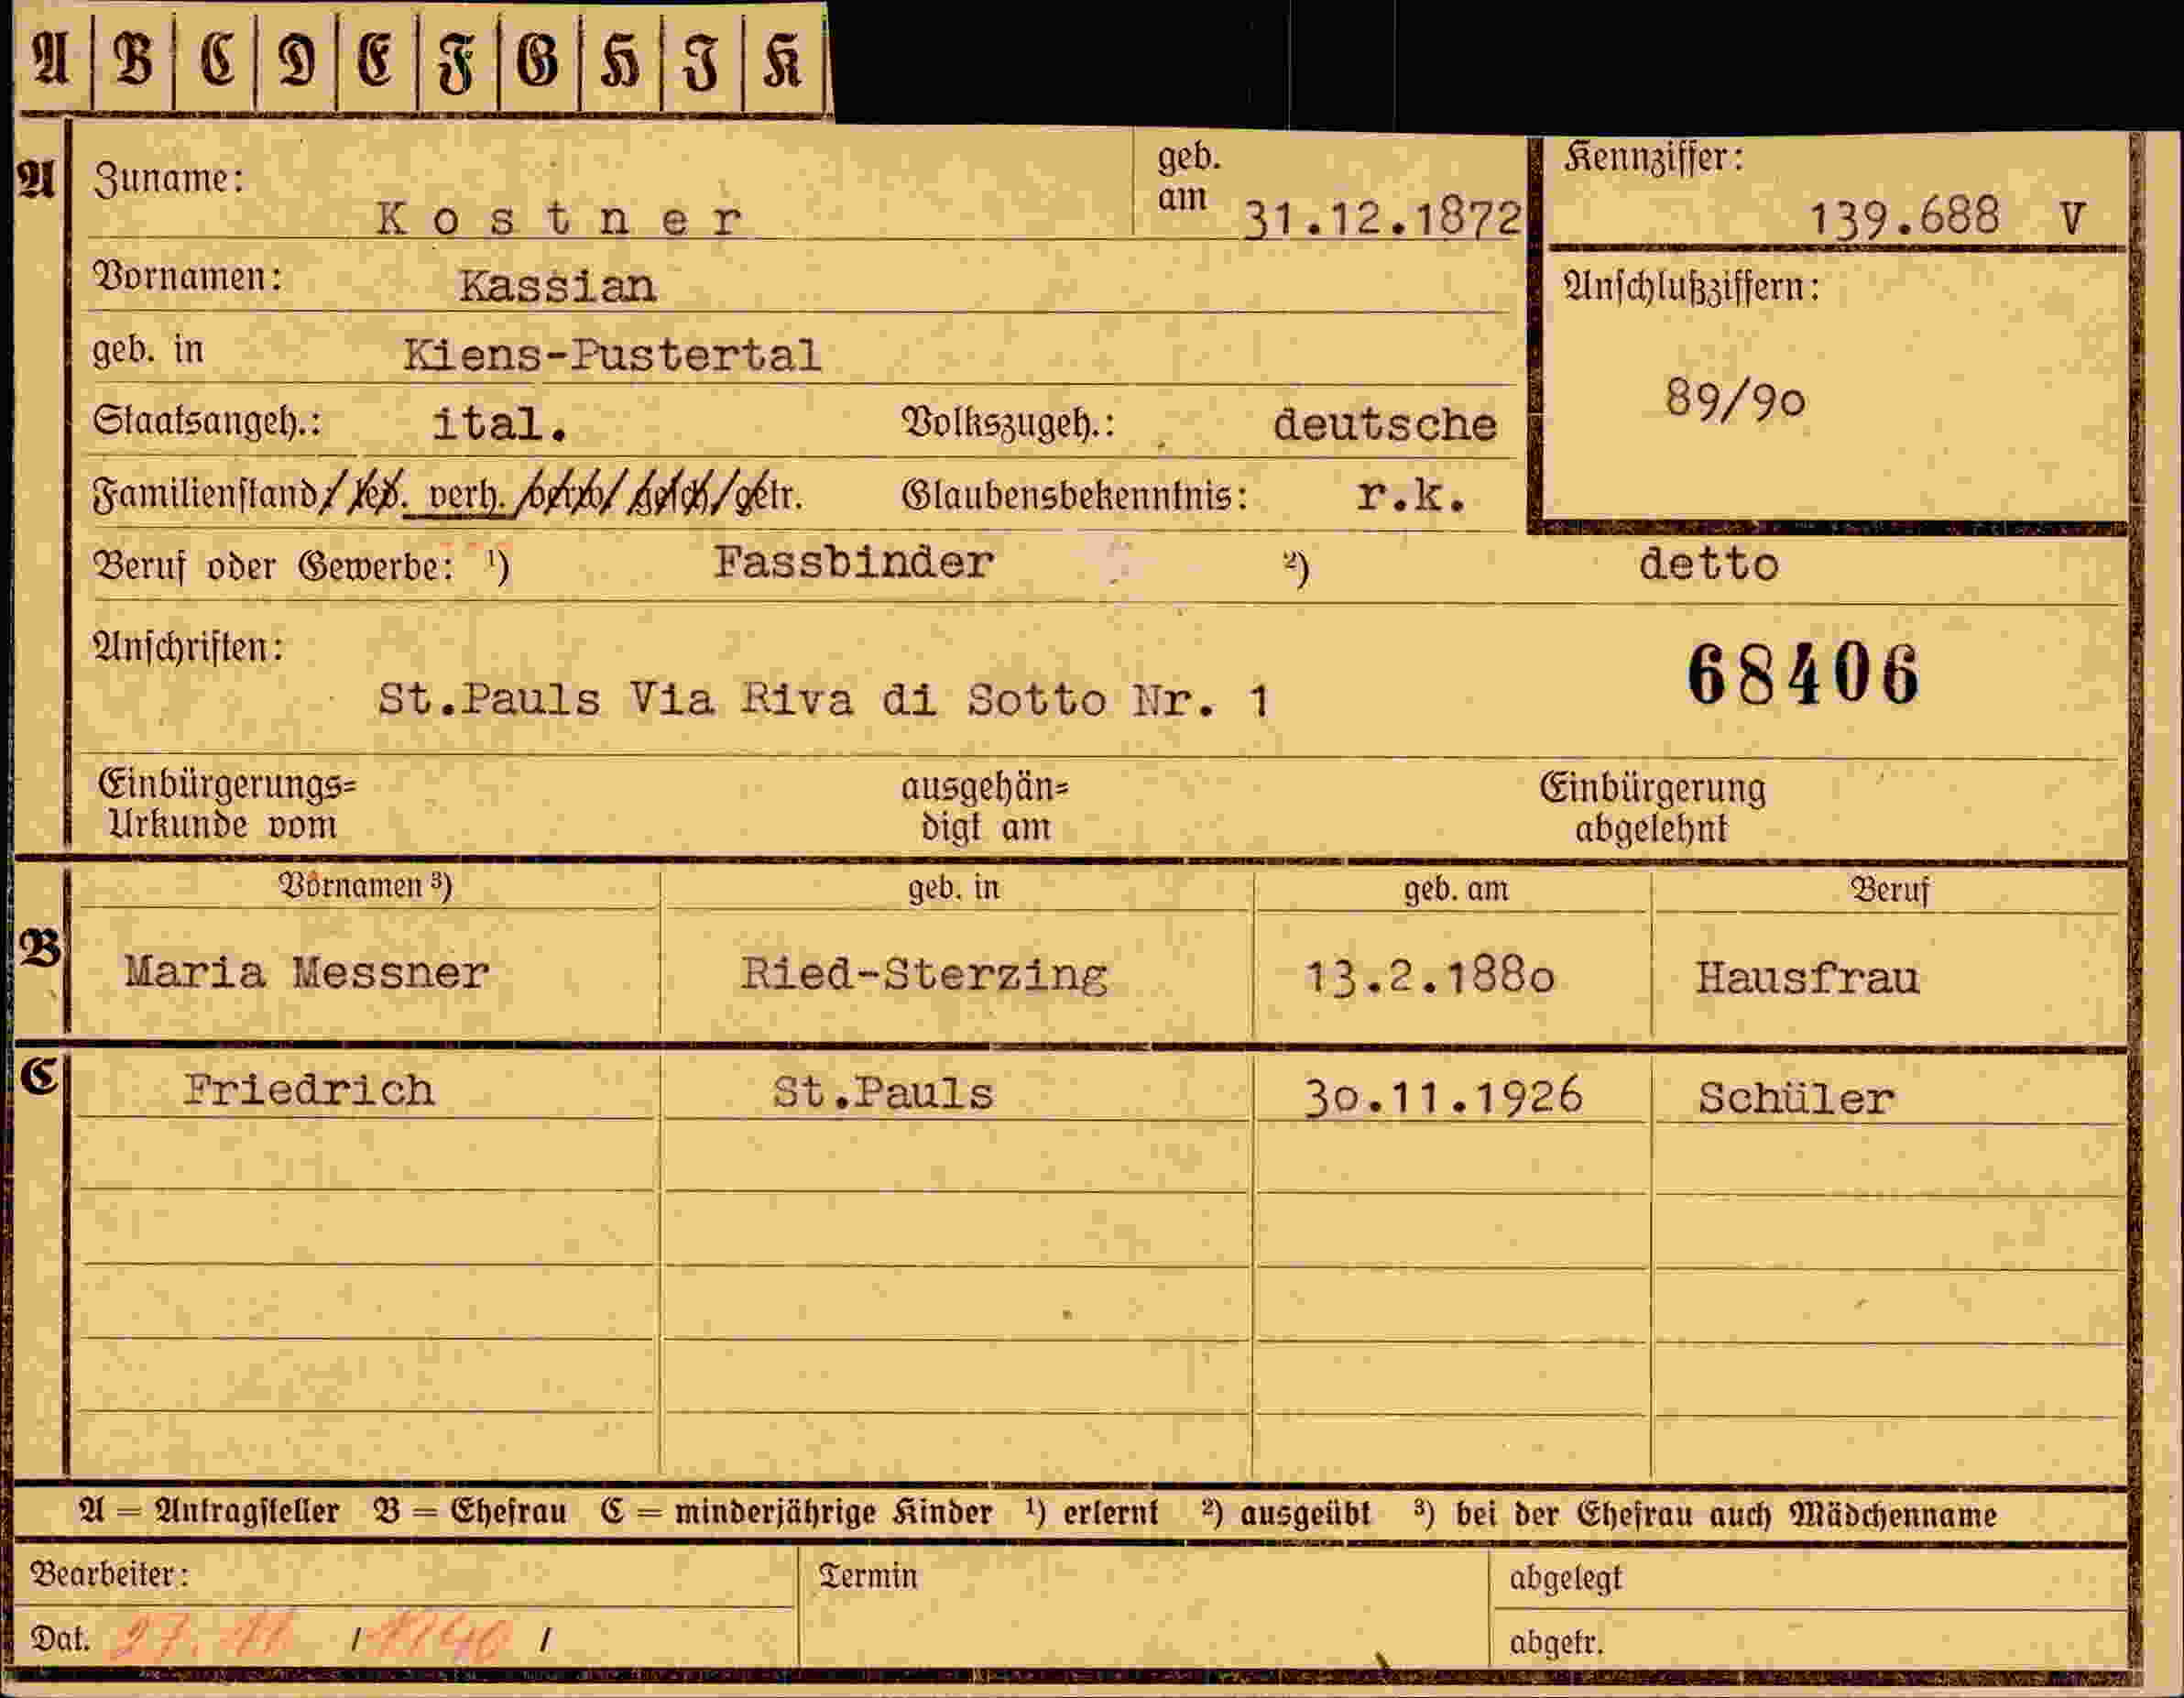 A B C D E F G H I K
A Zuname: Kostner geb. am 31.12.1872 Kennziffer: 139.688 V
Vornamen: Kassian Anschlußziffern:
geb. in Kiens-Pustertal
89/90
Staatsangeh.: ital. Volkszugeh.: deutsche
Familienstand / led. verh. / verw. / gesch. / getr. Glaubensbekenntnis: r.k.
Beruf oder Gewerbe: ¹) Fassbinder ²) detto
Anschriften: 68406
St.Pauls Via Riva di Sotto Nr. 1
Einbürgerungs= ausgehän= Einbürgerung
Urkunde vom digt am abgelehnt
Vornamen ³) geb. in geb. am Beruf
B Maria Messner Ried-Sterzing 13.2.1880 Hausfrau
C Friedrich St.Pauls 30.11.1926 Schüler
A = Antragsteller B = Ehefrau C = minderjährige Kinder ¹) erlernt ²) ausgeübt ³) bei der Ehefrau auch Mädchenname
Bearbeiter: Termin abgelegt
Dat. / / abgetr.